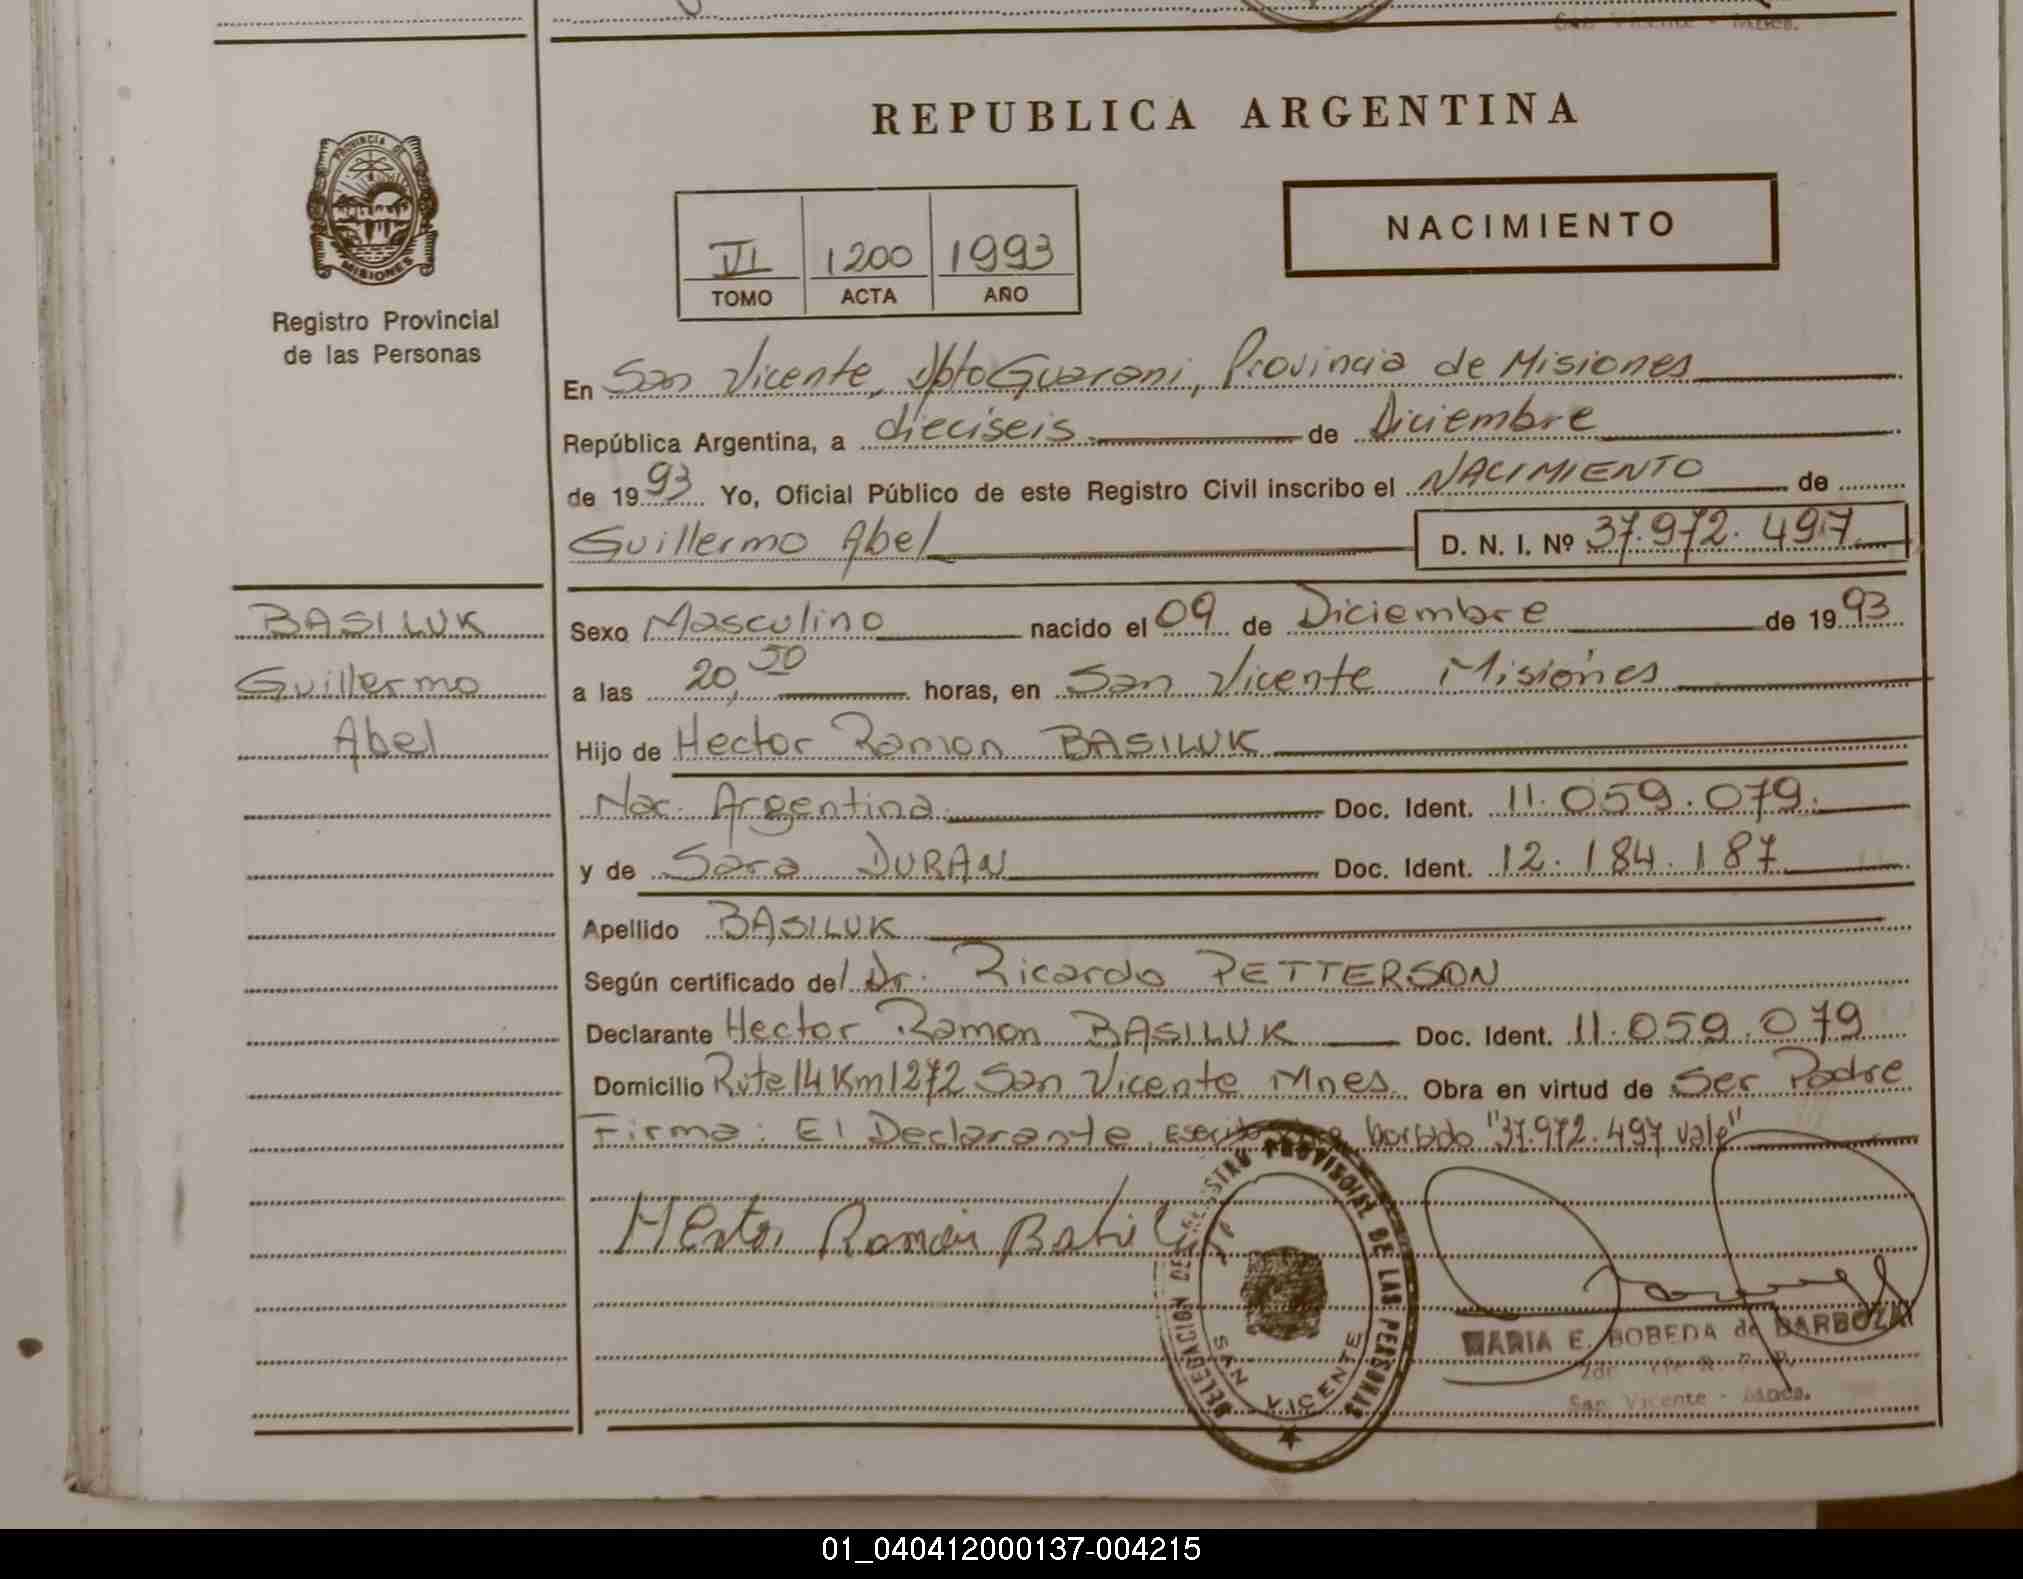 REPUBLICA ARGENTINA
PROVINCIA DE
MISIONES
Registro Provincial
de las Personas
NACIMIENTO
VI 1200 1993
TOMO ACTA AÑO
En San Vicente, Dpto Guarani, Provincia de Misiones
República Argentina, a dieciseis de Diciembre
de 1993 Yo, Oficial Público de este Registro Civil inscribo el NACIMIENTO de
Guillermo Abel D. N. I. Nº 37.972.497
BASILUK
Guillermo
Abel
Sexo Masculino nacido el 09 de Diciembre de 1993
a las 20,50 horas, en San Vicente Misiones
Hijo de Hector Ramon BASILUK
Nac. Argentina Doc. Ident. 11.059.079.
y de Sara DURAN Doc. Ident. 12.184.187
Apellido BASILUK
Según certificado del Dr. Ricardo PETTERSON
Declarante Hector Ramon BASILUK Doc. Ident. 11.059.079
Domicilio Ruta 14 Km 1272 San Vicente Mnes. Obra en virtud de Ser Padre
Firma: El Declarante, Escrito borrado "37.972.497 vale"
Hector Ramón
DELEGACION DEL REGISTRO PROVISORIAL DE LAS PERSONAS
SAN VICENTE
MARIA E. BOBEDA de BARBOZA
San Vicente - Mnes.
01_040412000137-004215